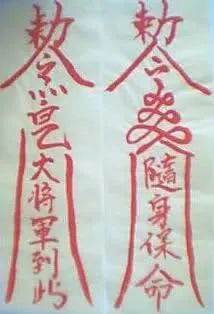 勅令
隨身保命
勅令
大將軍到此